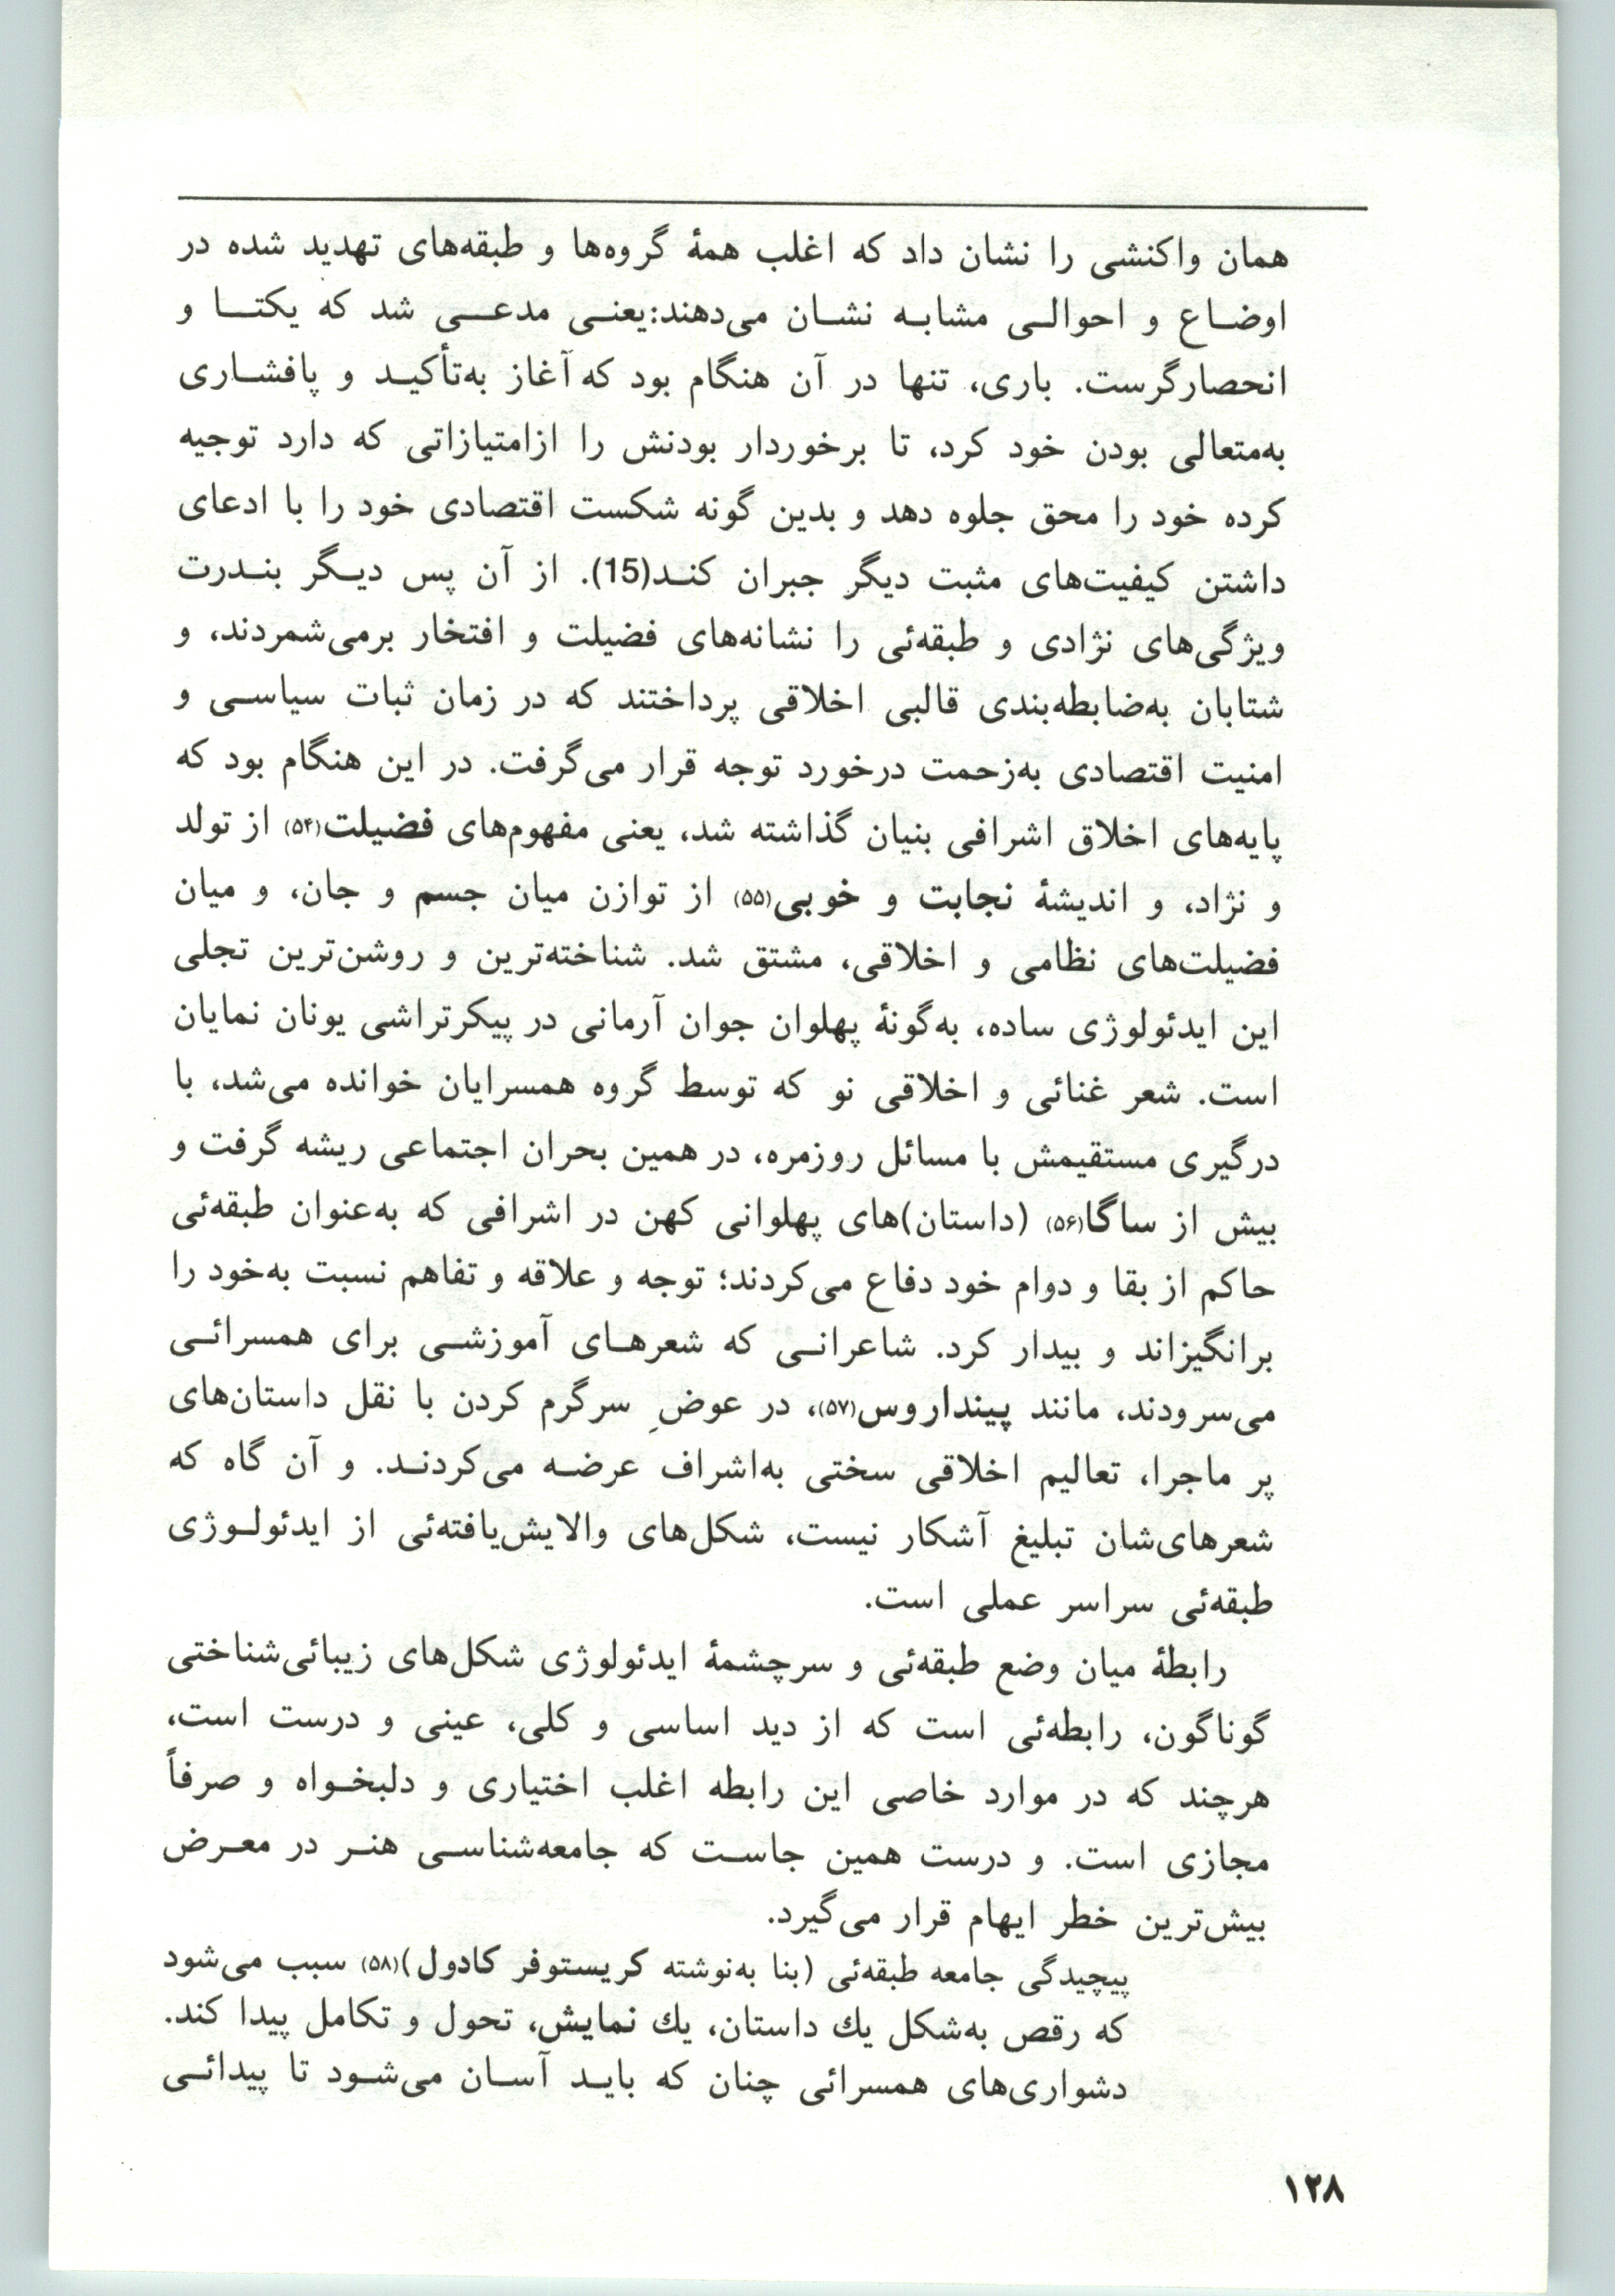 همان واکنشی را نشان داد که اغلب همهٔ گروه‌ها و طبقه‌های تهدید شده در
اوضاع و احوالی مشابه نشان می‌دهند:یعنی مدعی شد که یکتا و
انحصارگرست. باری، تنها در آن هنگام بود که آغاز به‌تأکید و پافشاری
به‌متعالی بودن خود کرد، تا برخوردار بودنش را ازامتیازاتی که دارد توجیه
کرده خود را محق جلوه دهد و بدین گونه شکست اقتصادی خود را با ادعای
داشتن کیفیت‌های مثبت دیگر جبران کند(15). از آن پس دیگر بندرت
ویژگی‌های نژادی و طبقه‌ئی را نشانه‌های فضیلت و افتخار برمی‌شمردند، و
شتابان به‌ضابطه‌بندی قالبی اخلاقی پرداختند که در زمان ثبات سیاسی و
امنیت اقتصادی به‌زحمت درخورد توجه قرار می‌گرفت. در این هنگام بود که
پایه‌های اخلاق اشرافی بنیان گذاشته شد، یعنی مفهوم‌های فضیلت(۵۴) از تولد
و نژاد، و اندیشهٔ نجابت و خوبی(۵۵) از توازن میان جسم و جان، و میان
فضیلت‌های نظامی و اخلاقی، مشتق شد. شناخته‌ترین و روشن‌ترین تجلی
این ایدئولوژی ساده، به‌گونهٔ پهلوان جوان آرمانی در پیکرتراشی یونان نمایان
است. شعر غنائی و اخلاقی نو که توسط گروه همسرایان خوانده می‌شد، با
درگیری مستقیمش با مسائل روزمره، در همین بحران اجتماعی ریشه گرفت و
بیش از ساگا(۵۶) (داستان)های پهلوانی کهن در اشرافی که به‌عنوان طبقه‌ئی
حاکم از بقا و دوام خود دفاع می‌کردند؛ توجه و علاقه و تفاهم نسبت به‌خود را
برانگیزاند و بیدار کرد. شاعرانی که شعرهای آموزشی برای همسرائی
می‌سرودند، مانند پینداروس(۵۷)، در عوضِ سرگرم کردن با نقل داستان‌های
پر ماجرا، تعالیم اخلاقی سختی به‌اشراف عرضه می‌کردند. و آن گاه که
شعرهای‌شان تبلیغ آشکار نیست، شکل‌های والایش‌یافته‌ئی از ایدئولوژی
طبقه‌ئی سراسر عملی است.
رابطهٔ میان وضع طبقه‌ئی و سرچشمهٔ ایدئولوژی شکل‌های زیبائی‌شناختی
گوناگون، رابطه‌ئی است که از دید اساسی و کلی، عینی و درست است،
هرچند که در موارد خاصی این رابطه اغلب اختیاری و دلبخواه و صرفاً
مجازی است. و درست همین جاست که جامعه‌شناسی هنر در معرض
بیش‌ترین خطر ایهام قرار می‌گیرد.
پیچیدگی جامعه طبقه‌ئی (بنا به‌نوشته کریستوفر کادول)(۵۸) سبب می‌شود
که رقص به‌شکل یك داستان، یك نمایش، تحول و تکامل پیدا کند.
دشواری‌های همسرائی چنان که باید آسان می‌شود تا پیدائی
۱۲۸